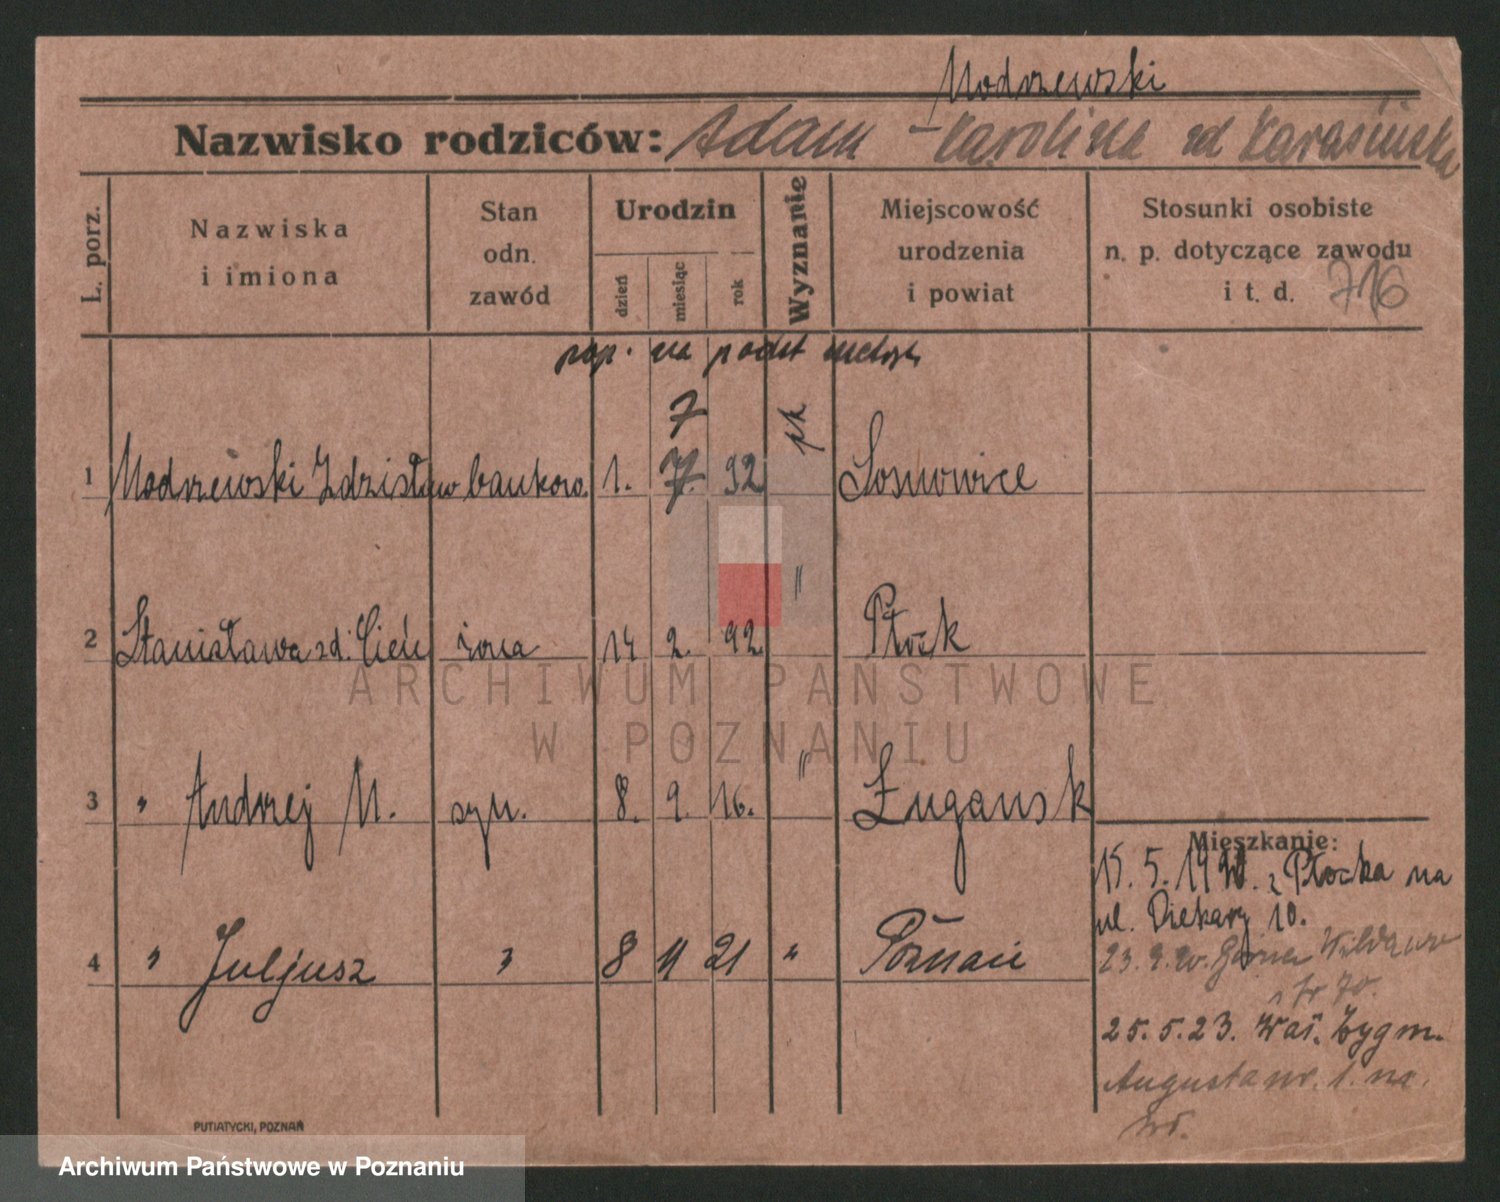 Modrzewski
Nazwisko rodziców: Adam - Karolina zd Karasińska
L. porz.
Nazwiska i imiona
Stan odn. zawód
Urodzin
dzień
miesiąc
rok
Wyznanie
Miejscowość urodzenia i powiat
Stosunki osobiste n. p. dotyczące zawodu i t. d.
716
pop. na podst metryk
7
1 Modrzewski Zdzisław bankow. 1. 7. 92 rk Sosnowice
2 Stanisława zd. Cień żona 14 2. 92 " Płock
3 " Andrzej M. syn. 8. 9. 16. " Ługansk
4 " Juljusz " 8 11 21 " Poznań
Mieszkanie:
15. 5. 1920. z Płocka na
ul. Piekary 10.
23. 9. Górna Wilda
70.
25. 5. 23. Zygm.
Augusta nr. 1.
PUTIATYCKI, POZNAŃ
ARCHIWUM PAŃSTWOWE
W POZNANIU
Archiwum Państwowe w Poznaniu